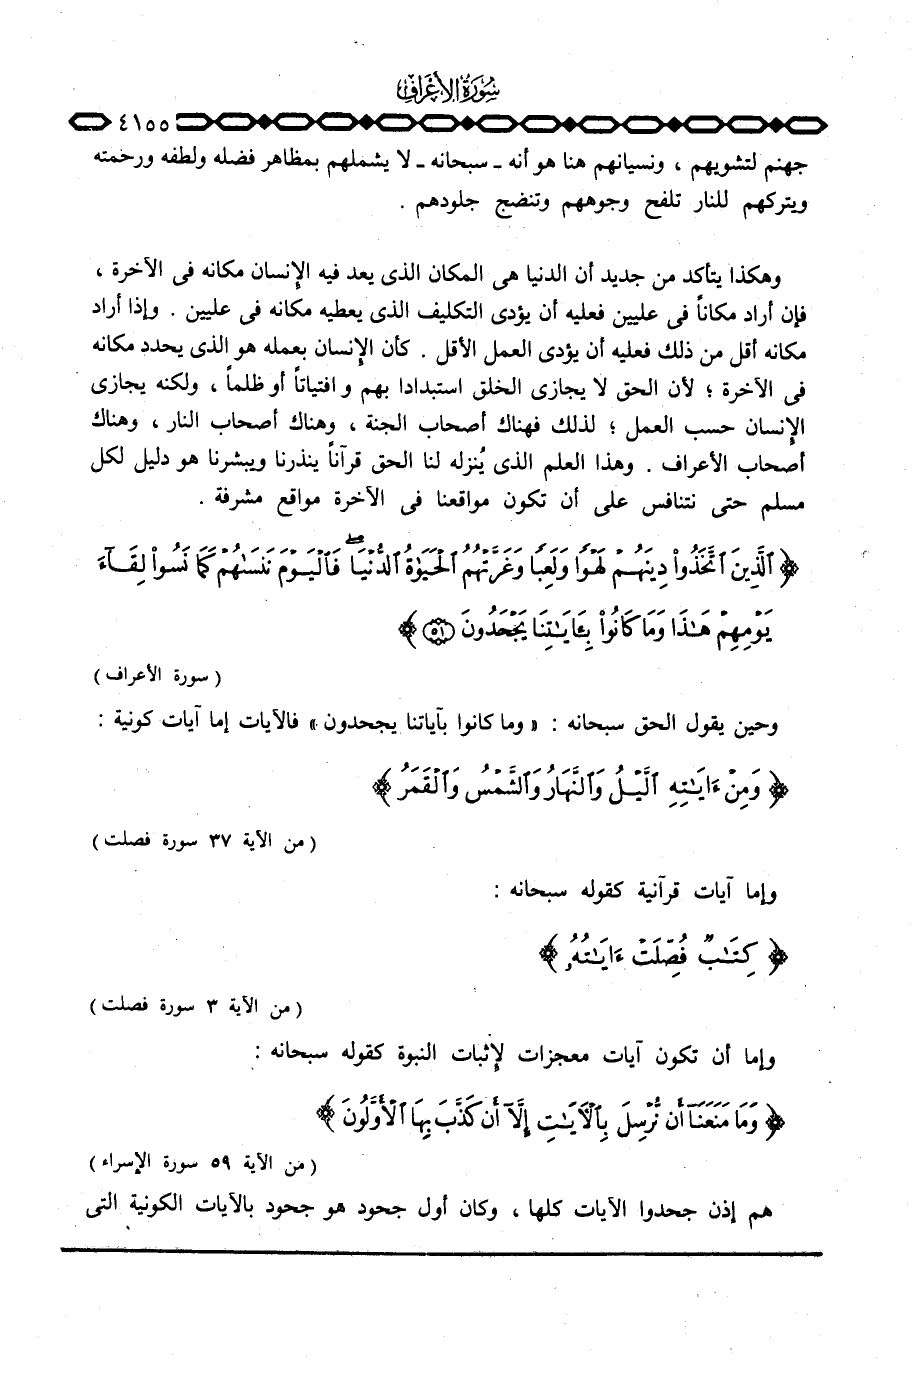 سُورَةُ الأَعْرَافِ
٤١٥٥
جهنم لتشويهم ، ونسيانهم هنا هو أنه ـ سبحانه ـ لا يشملهم بمظاهر فضله ولطفه ورحمته
ويتركهم للنار تلفح وجوههم وتنضج جلودهم .
وهكذا يتأكد من جديد أن الدنيا هى المكان الذى يعد فيه الإنسان مكانه فى الآخرة ،
فإن أراد مكاناً فى عليين فعليه أن يؤدى التكليف الذى يعطيه مكانه فى عليين . وإذا أراد
مكانه أقل من ذلك فعليه أن يؤدى العمل الأقل . كأن الإنسان بعمله هو الذى يحدد مكانه
فى الآخرة ؛ لأن الحق لا يجازى الخلق استبدادا بهم و افتياتاً أو ظلماً ، ولكنه يجازى
الإنسان حسب العمل ؛ لذلك فهناك أصحاب الجنة ، وهناك أصحاب النار ، وهناك
أصحاب الأعراف . وهذا العلم الذى يُنزله لنا الحق قرآناً ينذرنا ويبشرنا هو دليل لكل
مسلم حتى نتنافس على أن تكون مواقعنا فى الآخرة مواقع مشرفة .
﴿ ٱلَّذِينَ ٱتَّخَذُواْ دِينَهُمْ لَهْوًا وَلَعِبًا وَغَرَّتْهُمُ ٱلْحَيَوٰةُ ٱلدُّنْيَا ۖ فَٱلْيَوْمَ نَنسَىٰهُمْ كَمَا نَسُواْ لِقَآءَ
يَوْمِهِمْ هَـٰذَا وَمَا كَانُواْ بِـَٔايَـٰتِنَا يَجْحَدُونَ ٥١ ﴾
( سورة الأعراف )
وحين يقول الحق سبحانه : « وما كانوا بآياتنا يجحدون » فالآيات إما آيات كونية :
﴿ وَمِنْ ءَايَـٰتِهِ ٱلَّيْلُ وَٱلنَّهَارُ وَٱلشَّمْسُ وَٱلْقَمَرُ ﴾
( من الآية ٣٧ سورة فصلت )
وإما آيات قرآنية كقوله سبحانه :
﴿ كِتَـٰبٌ فُصِّلَتْ ءَايَـٰتُهُۥ ﴾
( من الآية ٣ سورة فصلت )
وإما أن تكون آيات معجزات لإثبات النبوة كقوله سبحانه :
﴿ وَمَا مَنَعَنَآ أَن نُّرْسِلَ بِٱلْـَٔايَـٰتِ إِلَّآ أَن كَذَّبَ بِهَا ٱلْأَوَّلُونَ ﴾
( من الآية ٥٩ سورة الإسراء )
هم إذن جحدوا الآيات كلها ، وكان أول جحود هو جحود بالآيات الكونية التى